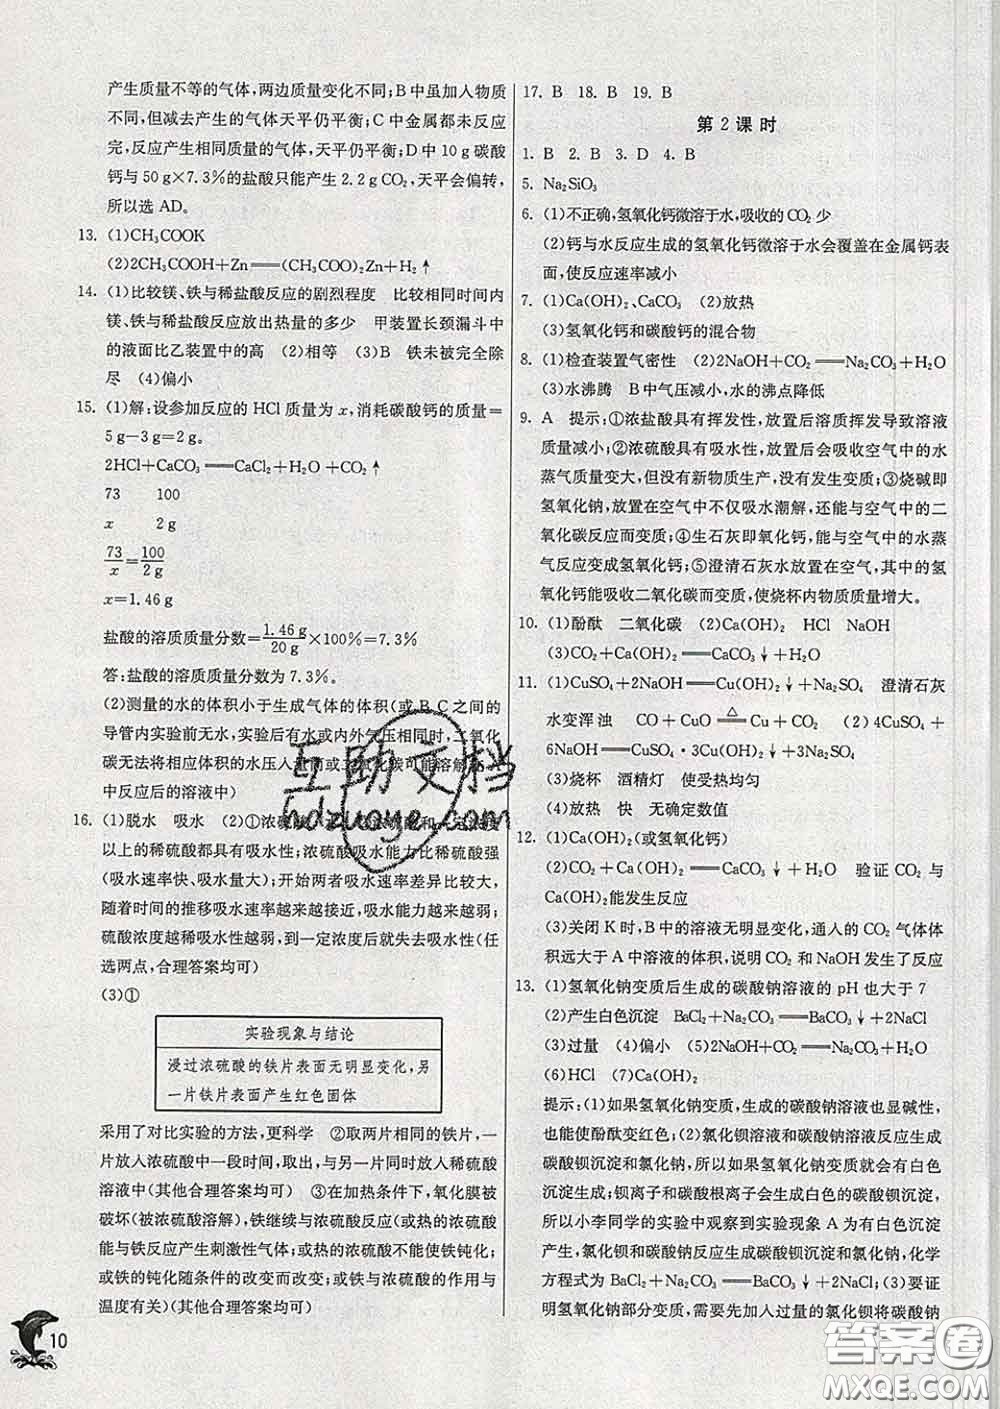 产生质量不等的气体,两边质量变化不同;B中虽加人物质
不同,但减去产生的气体天平仍平衡;C中金属都未反应
完,反应产生相同质量的气体,天平仍平衡;D中10 g碳酸
钙与50 g×7.3%的盐酸只能产生2.2 g CO₂,天平会偏转,
所以选AD。
13. (1)CH₃COOK
(2)2CH₃COOH+Zn══(CH₃COO)₂Zn+H₂↑
14. (1)比较镁、铁与稀盐酸反应的剧烈程度 比较相同时间内
镁、铁与稀盐酸反应放出热量的多少 甲装置长颈漏斗中
的液面比乙装置中的高 (2)相等 (3)B 铁未被完全除
尽 (4)偏小
15. (1)解:设参加反应的HCl质量为x,消耗碳酸钙的质量=
5 g-3 g=2 g。
2HCl+CaCO₃══CaCl₂+H₂O+CO₂↑
73 100
x 2 g
73/x=100/2 g
x=1.46 g
盐酸的溶质质量分数=1.46 g/20 g×100%=7.3%
答:盐酸的溶质质量分数为7.3%。
(2)测量的水的体积小于生成气体的体积(或B、C之间的
导管内实验前无水,实验后有水或内外气压相同时,二氧化
碳无法将相应体积的水压人量筒或二氧化碳可能溶解在
中反应后的溶液中)
16. (1)脱水 吸水 (2)①浓硫酸和一定浓度
以上的稀硫酸都具有吸水性;浓硫酸吸水能力比稀硫酸强
(吸水速率快、吸水量大);开始两者吸水速率差异比较大,
随着时间的推移吸水速率越来越接近,吸水能力越来越弱;
硫酸浓度越稀吸水性越弱,到一定浓度后就失去吸水性(任
选两点,合理答案均可)
(3)①
实验现象与结论
浸过浓硫酸的铁片表面无明显变化,另
一片铁片表面产生红色固体
采用了对比实验的方法,更科学 ②取两片相同的铁片,一
片放人浓硫酸中一段时间,取出,与另一片同时放人稀硫酸
溶液中(其他合理答案均可) ③在加热条件下,氧化膜被
破坏(被浓硫酸溶解),铁继续与浓硫酸反应(或热的浓硫酸
能与铁反应产生刺激性气体;或热的浓硫酸不能使铁钝化;
或铁的钝化随条件的改变而改变;或铁与浓硫酸的作用与
温度有关)(其他合理答案均可)
10
17. B 18. B 19. B
第2课时
1. B 2. B 3. D 4. B
5. Na₂SiO₃
6. (1)不正确,氢氧化钙微溶于水,吸收的CO₂少
(2)钙与水反应生成的氢氧化钙微溶于水会覆盖在金属钙表
面,使反应速率减小
7. (1)Ca(OH)₂、CaCO₃ (2)放热
(3)氢氧化钙和碳酸钙的混合物
8. (1)检查装置气密性 (2)2NaOH+CO₂══Na₂CO₃+H₂O
(3)水沸腾 B中气压减小,水的沸点降低
9. A 提示:①浓盐酸具有挥发性,放置后溶质挥发导致溶液
质量减小;②浓硫酸具有吸水性,放置后会吸收空气中的水
蒸气质量变大,但没有新物质生产,没有发生变质;③烧碱即
氢氧化钠,放置在空气中不仅吸水潮解,还能与空气中的二
氧化碳反应而变质;④生石灰即氧化钙,能与空气中的水蒸
气反应变成氢氧化钙;⑤澄清石灰水放置在空气,其中的氢
氧化钙能吸收二氧化碳而变质,使烧杯内物质质量增大。
10. (1)酚酞 二氧化碳 (2)Ca(OH)₂ HCl NaOH
(3)CO₂+Ca(OH)₂══CaCO₃↓+H₂O
11. (1)CuSO₄+2NaOH══Cu(OH)₂↓+Na₂SO₄ 澄清石灰
水变浑浊 CO+CuO══△Cu+CO₂ (2)4CuSO₄+
6NaOH══CuSO₄·3Cu(OH)₂↓+3Na₂SO₄
(3)烧杯 酒精灯 使受热均匀
(4)放热 快 无确定数值
12. (1)Ca(OH)₂(或氢氧化钙)
(2)CO₂+Ca(OH)₂══CaCO₃↓+H₂O 验证CO₂与
Ca(OH)₂能发生反应
(3)关闭K时,B中的溶液无明显变化,通人的CO₂气体体
积远大于A中溶液的体积,说明CO₂和NaOH发生了反应
13. (1)氢氧化钠变质后生成的碳酸钠溶液的pH也大于7
(2)产生白色沉淀 BaCl₂+Na₂CO₃══BaCO₃↓+2NaCl
(3)过量 (4)偏小 (5)2NaOH+CO₂══Na₂CO₃+H₂O
(6)HCl (7)CaCl₂
提示:(1)如果氢氧化钠变质,生成的碳酸钠溶液也显碱性,
也能使酚酞变红色;(2)氯化钡溶液和碳酸钠溶液反应生成
碳酸钡沉淀和氯化钠,所以如果氢氧化钠变质就会有白色
沉淀生成;钡离子和碳酸根离子会生成白色的碳酸钡沉淀,
所以小李同学的实验中观察到实验现象A为有白色沉淀
产生,氯化钡和碳酸钠反应生成碳酸钡沉淀和氯化钠,化学
方程式为BaCl₂+Na₂CO₃══BaCO₃↓+2NaCl;(3)要证
明氢氧化钠部分变质,需要先加人过量的氯化钡将碳酸钠
互助文档
hdzuoye.com
答案圈
MXQE.COM